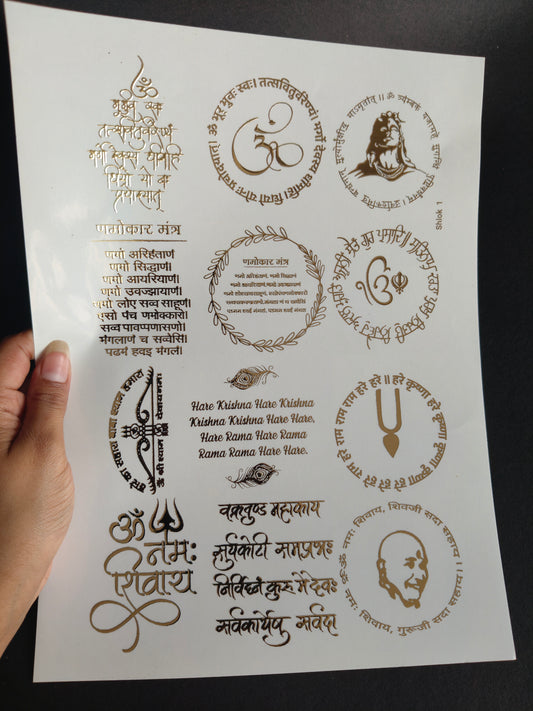 ॐ
भूर्भुवः स्वः
तत्सवितुर्वरेण्यं
भर्गो देवस्य धीमहि
धियो यो नः
प्रचोदयात्
ॐ भूर भुवः स्वः। तत्सवितुर्वरेण्यं। भर्गो देवस्य धीमहि। धियो योनः प्रचोदयात्।
ॐ
ॐ त्र्यम्बकं यजामहे सुगन्धिं पुष्टिवर्धनम्
Shlok 1
णमोकार मंत्र
णमो अरिहंताणं
णमो सिद्धाणं।
णमो आयरियाणं।
णमो उवज्झायाणं।
णमो लोए सव्व साहूणं।
एसो पंच णमोक्कारो।
सव्व पावप्पणासणो।
मंगलाणं च सव्वेसिं।
पढमं हवइ मंगलं।
णमोकार मंत्र
णमो अरिहंताणं, णमो सिद्धाणं
णमो आयरियाणं, णमो उवज्झायाणं
ੴ
हारे का सहारा बाबा श्याम हमारा
ॐ श्री श्याम देवाय नमः।
Hare Krishna Hare Krishna
Krishna Krishna Hare Hare,
Hare Rama Hare Rama
Rama Rama Hare Hare.
हरे कृष्णा हरे कृष्णा कृष्णा कृष्णा हरे हरे हरे राम हरे राम राम राम हरे हरे ॥
ॐ
नमः
शिवाय
वक्रतुण्ड महाकाय
सुर्यकोटी समप्रभः
निर्विघ्नं कुरु मे देवः
सर्वकार्येषु सर्वदा
ॐ नमः शिवाय, शिवजी सदा सहाय।
ॐ नमः शिवाय, गुरूजी सदा सहाय।